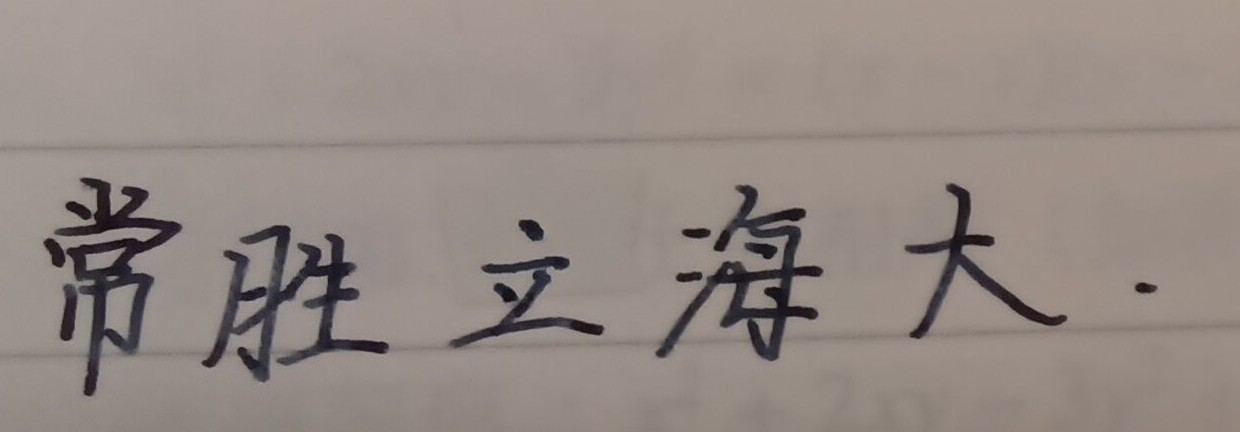 常胜立海大.